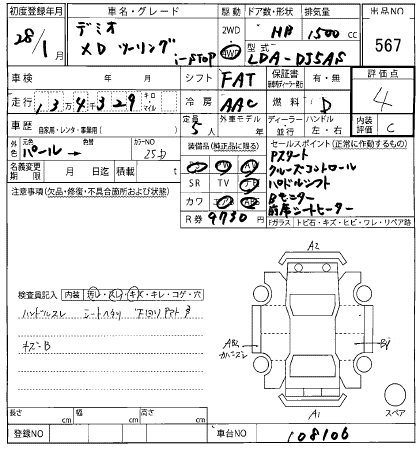 初度登録年月 車名・グレード 駆動 ドア数・形状 排気量 出品NO
28/1月 デミオ XDツーリング i-STOP 2WD 4WD HB 1500cc 567
型式 LDA-DJ5AS
車検 年 月 シフト FAT 保証書 有・無 評価点 4
走行 13万4千329 キロ・マイル 冷房 AAC 燃料 D
車歴 自家用・レンタ・事業用( ) 定員 5人 外車モデル 年 ディーラー 並行 ハンドル 左・右 内装評価 C
外色 元色 パール → 色替 カラーNO 25D
装備品(純正品に限る) セールスポイント(正常に作動するもの)
名義変更期限 月 日迄 積載 t
PS PW AW
SR TV ナビ
カワ エアB ABS
R券 9730円
Pスタート
クルーズコントロール
パドルシフト
Bモニター
前席シートヒーター
注意事項(欠品・修復・不具合箇所および状態)
Fガラス トビ石・キズ・ヒビ・ワレ・リペア跡
検査員記入 内装 汚レ・スレ・キズ・キレ・コゲ・穴
ハンドルスレ シートヘタリ 下回りサビ
キズ-B
A2
A1
スペア
長さ cm 幅 cm 高さ cm
登録NO 車台NO 108106